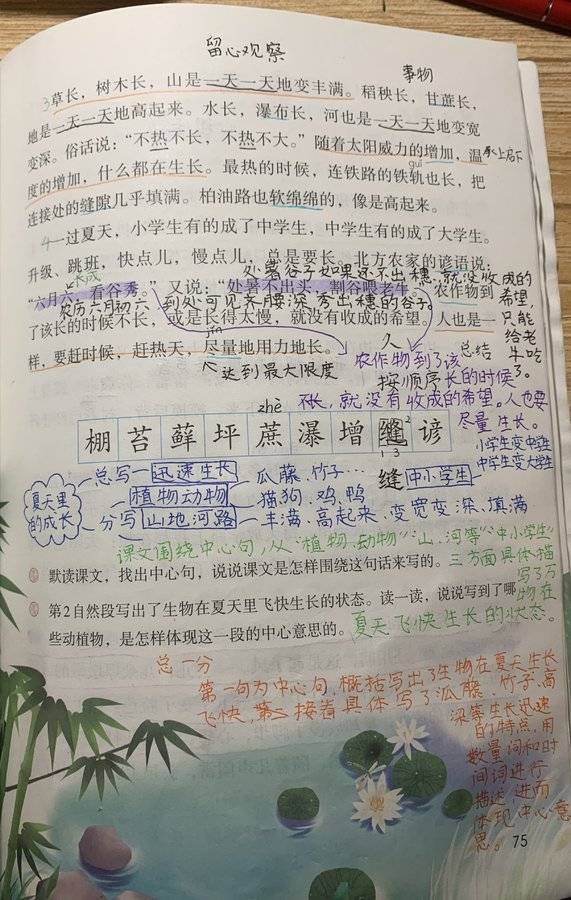 留心观察
事物
3草长，树木长，山是一天一天地变丰满。稻秧长，甘蔗长，
地是一天一天地高起来。水长，瀑布长，河也是一天一天地变宽
变深。俗话说：“不热不长，不热不大。”随着太阳威力的增加，温
承上启下
guǐ
度的增加，什么都在生长。最热的时候，连铁路的铁轨也长，把
连接处的缝隙几乎填满。柏油路也软绵绵的，像是高起来。
4一过夏天，小学生有的成了中学生，中学生有的成了大学生。
升级、跳班，快点儿，慢点儿，总是要长。北方农家的谚语说：
长成
处暑谷子如果还不出穗，就没收成的希望，只能给老牛吃了。
“六月六，看谷秀。”又说：“处暑不出头，割谷喂老牛。”农作物到
农历六月初六
到处可见齐腰深秀出穗的谷子。
了该长的时候不长，或是长得太慢，就没有收成的希望。人也是一
jǐn
样，要赶时候，赶热天，尽量地用力地长。
达到最大限度
总结
农作物到了该
按顺序长的时候
不长，就没有收成的希望。人也要
尽量生长。
zhè
棚苔藓坪蔗瀑增缝谚
1 3 2
缝
小学生变中学生
中学生变大学生
夏天里的成长
总写 迅速生长
分写
植物动物
瓜藤、竹子…
猫狗、鸡、鸭
山地河路
丰满、高起来、变宽变深、填满
中小学生
课文围绕中心句，从“植物、动物”“山、河等”“中小学生”
三方面具体描写了万物在
夏天飞快生长的状态。
默读课文，找出中心句，说说课文是怎样围绕这句话来写的。
第2自然段写出了生物在夏天里飞快生长的状态。读一读，说说写到了哪
些动植物，是怎样体现这一段的中心意思的。
总一分
第一句为中心句，概括写出了生物在夏天生长
飞快，接着具体写了瓜藤、竹子、高
粱等生长迅速
的特点，用
数量词和时
间词进行
描述，进而
体现中心意
思。
75